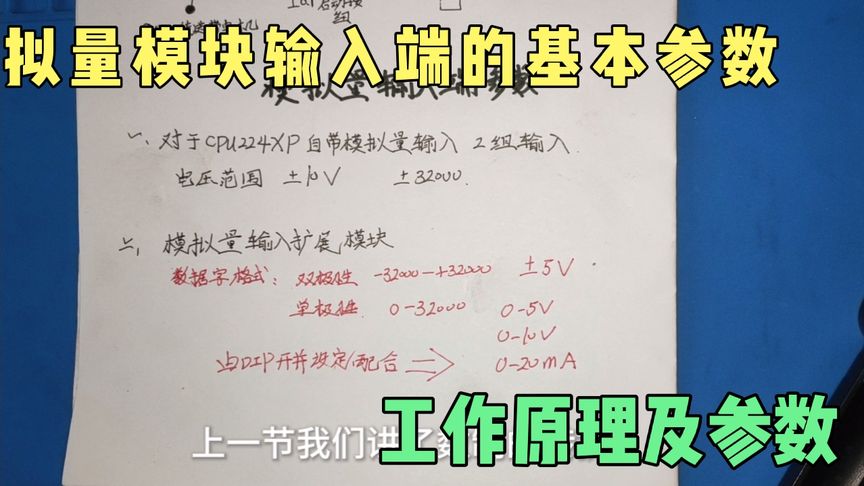 拟量模块输入端的基本参数
模拟量输入端参数
一、对于CPU224XP自带模拟量输入 2组输入
电压范围 ±10V ±32000.
二、模拟量输入扩展模块
数据字格式: 双极性 -32000-+32000 ±5V
单极性 0-32000 0-5V
0-10V
与DIP开并设定配合 ⇒ 0-20mA
工作原理及参数
上一节我们讲了